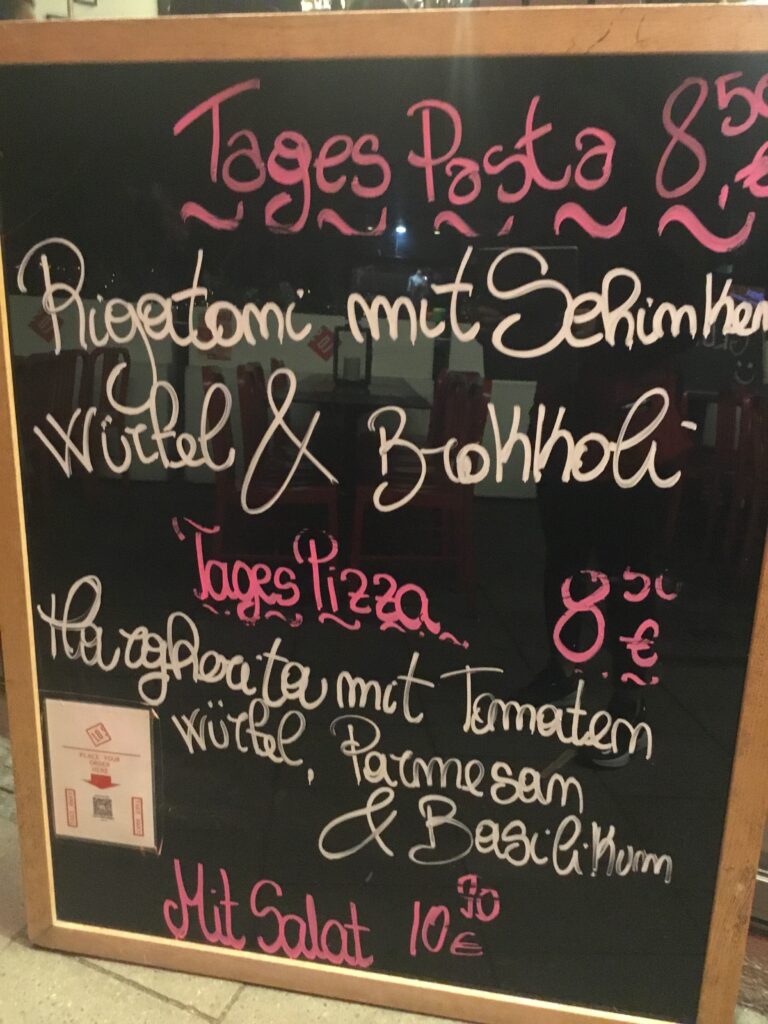 Tages Pasta 8,50 €
Rigatoni mit Schinken
Würfel & Brokkoli
Tages Pizza 8 50 €
Margherita mit Tomaten
Würfel, Parmesan
& Basilikum
PLACE YOUR
ORDER
HERE
Mit Salat 10 90 €